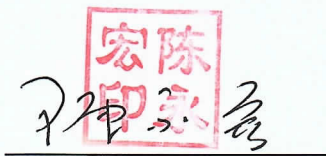 陈永宏印
陈永宏